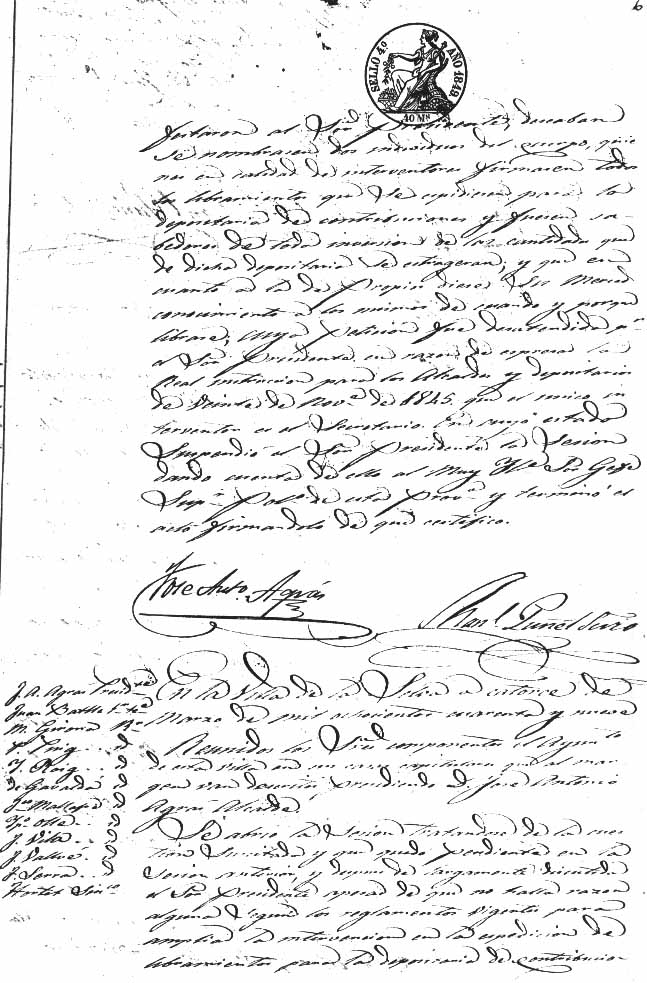 6
SELLO 4º AÑO 1849
40 Ms
al Sor Presidente, deseaban
se nombrasen dos individuos del cuerpo, quie
nes en calidad de interventores firmasen todos
los libramientos que se espidieran para la
depositaria de contribuciones y fuesen sa-
bedores de toda inversion de las cantidades que
de dicha depositaria se estrageran, y que en
cuanto a la de Propios diese Su Merced
conocimiento a los mismos de cuando y porque
librase, cuya peticion fue desatendida pr
el Sor Presidente en razon de espresar la
Real instruccion para los Alcaldes y depositarios
de Veinte de Nove de 1845. que el unico in
terventor es el Secretario. En cuyo estado
Suspendió el Sor Presidente la Sesion
dando cuenta de ello al Muy Ye Sor Gefe
Supr Polco de esta Prova y terminó el
acto firmandolo de que certifico.
Jose Anto Agrás
Manl
J. A. Agras Presidte
Juan Batlle te
M. Girona Rr
Puig id
Roig id
id
id
Olle id
J. Vila id
J. Vallve id
J. Serra id
Sinco
En la Villa de la Selva a catorce de
Marzo de mil ochocientos cuarenta y nueve
Reunidos los Sres componentes el Ayunto
de esta villa en sus casas capitulares que al mar
gen van descritos, presidiendo D. Jose Antonio
Agras Alcalde
Se abrio la Sesion tratandose de la cues
tion Suscitada y que quedo pendiente en la
Sesion anterior, y despues de largamente discutida
el Sor Presidente apesar de que no halla razon
alguna Segun los reglamentos vigentes para
ampliar la intervencion en la espedicion de
libramientos para la depositaria de contribucio-